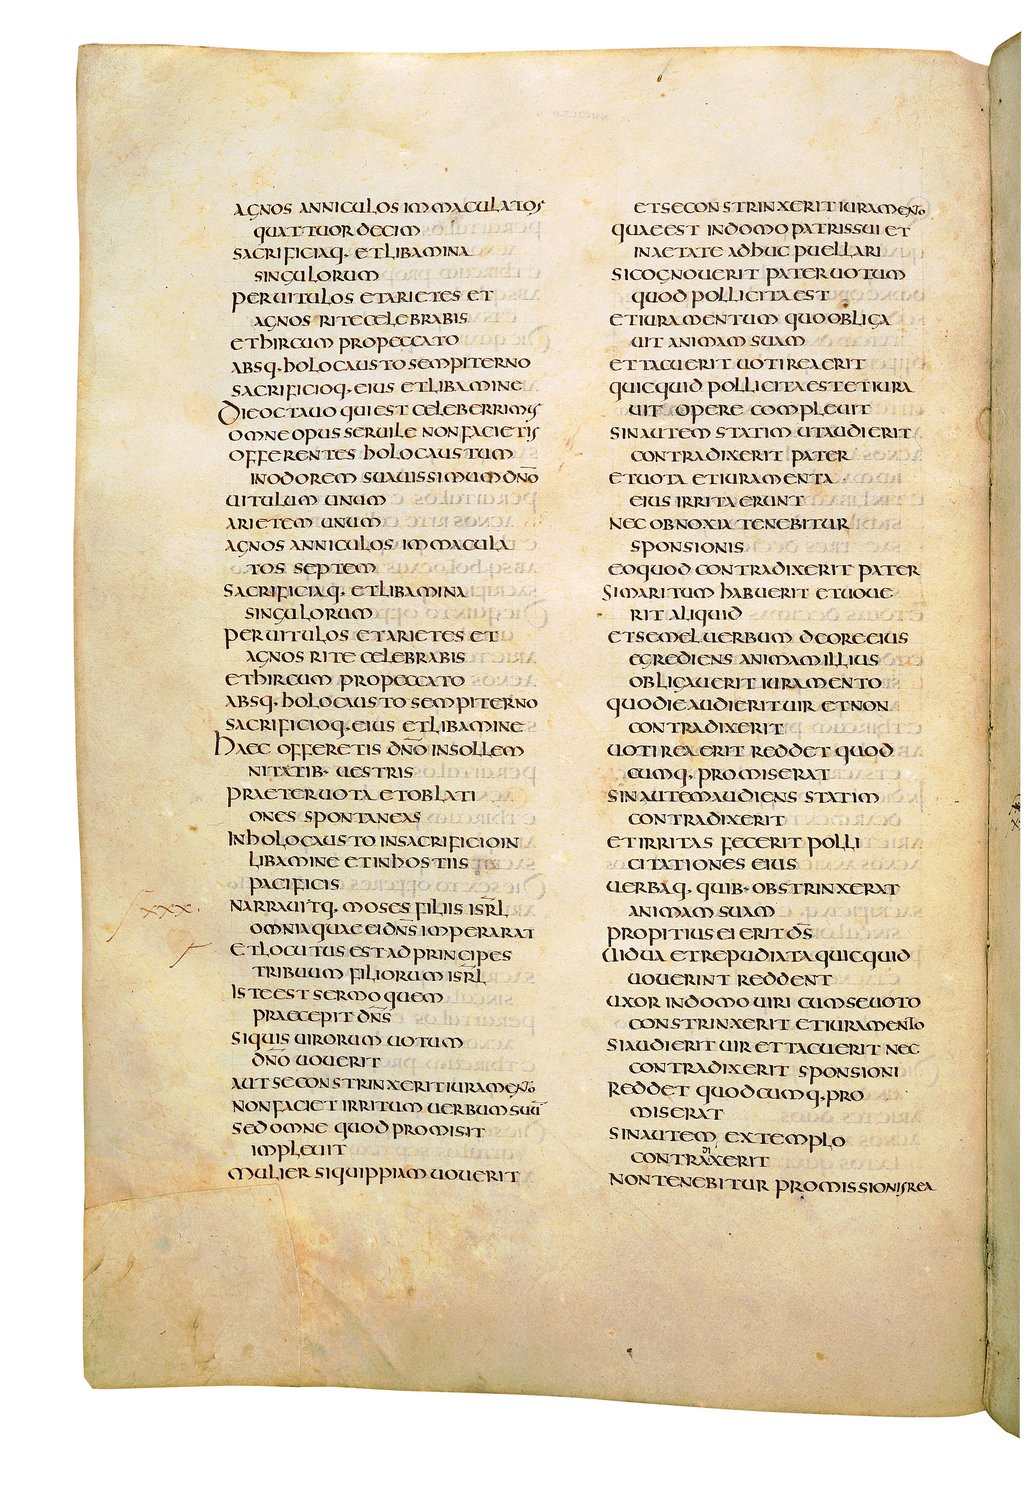 AGNOS ANNICULOS IMMACULATOS
QUATTUORDECIM
SACRIFICIAQ· ET LIBAMINA
SINGULORUM
PER UITULOS ET ARIETES ET
AGNOS RITE CELEBRABIS
ET HIRCUM PRO PECCATO
ABSQ· HOLOCAUSTO SEMPITERNO
SACRIFICIOQ· EIUS ET LIBAMINE
DIE OCTAUO QUI EST CELEBERRIMUS
OMNE OPUS SERUILE NON FACIETIS
OFFERENTES HOLOCAUSTUM
IN ODOREM SUAUISSIMUM DN̄O
UITULUM UNUM
ARIETEM UNUM
AGNOS ANNICULOS IMMACULA
TOS SEPTEM
SACRIFICIAQ· ET LIBAMINA
SINGULORUM
PER UITULOS ET ARIETES ET
AGNOS RITE CELEBRABIS
ET HIRCUM PRO PECCATO
ABSQ· HOLOCAUSTO SEMPITERNO
SACRIFICIOQ· EIUS ET LIBAMINE
HAEC OFFERETIS DN̄O IN SOLLEM
NITATIB· UESTRIS
PRAETER UOTA ET OBLATI
ONES SPONTANEAS
IN HOLOCAUSTO IN SACRIFICIO IN
LIBAMINE ET IN HOSTIIS
PACIFICIS
XXX·
NARRAUITQ· MOSES FILIIS ISRL̄
OMNIA QUAE EI DN̄S IMPERARAT
ET LOCUTUS EST AD PRINCIPES
TRIBUUM FILIORUM ISRL̄
ISTE EST SERMO QUEM
PRAECEPIT DN̄S
SI QUIS UIRORUM UOTUM
DN̄O UOUERIT
AUT SE CONSTRINXERIT IURAMENTO
NON FACIET IRRITUM UERBUM SUŪ
SED OMNE QUOD PROMISIT
IMPLEUIT
MULIER SI QUIPPIAM UOUERIT
ET SE CONSTRINXERIT IURAMENTO
QUAE EST IN DOMO PATRIS SUI ET
IN AETATE ADHUC PUELLARI
SI COGNOUERIT PATER UOTUM
QUOD POLLICITA EST
ET IURAMENTUM QUO OBLIGA
UIT ANIMAM SUAM
ET TACUERIT UOTI REA ERIT
QUICQUID POLLICITA EST ET IURA
UIT OPERE COMPLEUIT
SIN AUTEM STATIM UT AUDIERIT
CONTRADIXERIT PATER
ET UOTA ET IURAMENTA
EIUS IRRITA ERUNT
NEC OBNOXIA TENEBITUR
SPONSIONIS
EO QUOD CONTRADIXERIT PATER
SI MARITUM HABUERIT ET UOUE
RIT ALIQUID
ET SEMEL UERBUM DE ORE EIUS
EGREDIENS ANIMAM ILLIUS
OBLIGAUERIT IURAMENTO
QUO DIE AUDIERIT UIR ET NON
CONTRADIXERIT
UOTI REA ERIT REDDET QUOD
CUMQ· PROMISERAT
SIN AUTEM AUDIENS STATIM
CONTRADIXERIT
ET IRRITAS FECERIT POLLI
CITATIONES EIUS
UERBAQ· QUIB· OBSTRINXERAT
ANIMAM SUAM
PROPITIUS EI ERIT D̄S
UIDUA ET REPUDIATA QUICQUID
UOUERINT REDDENT
UXOR IN DOMO UIRI CUM SE UOTO
CONSTRINXERIT ET IURAMENTO
SI AUDIERIT UIR ET TACUERIT NEC
CONTRADIXERIT SPONSIONI
REDDET QUODCUMQ· PRO
MISERAT
SIN AUTEM EXTEMPLO
CONTRADIXERIT
NON TENEBITUR PROMISSIONIS REA